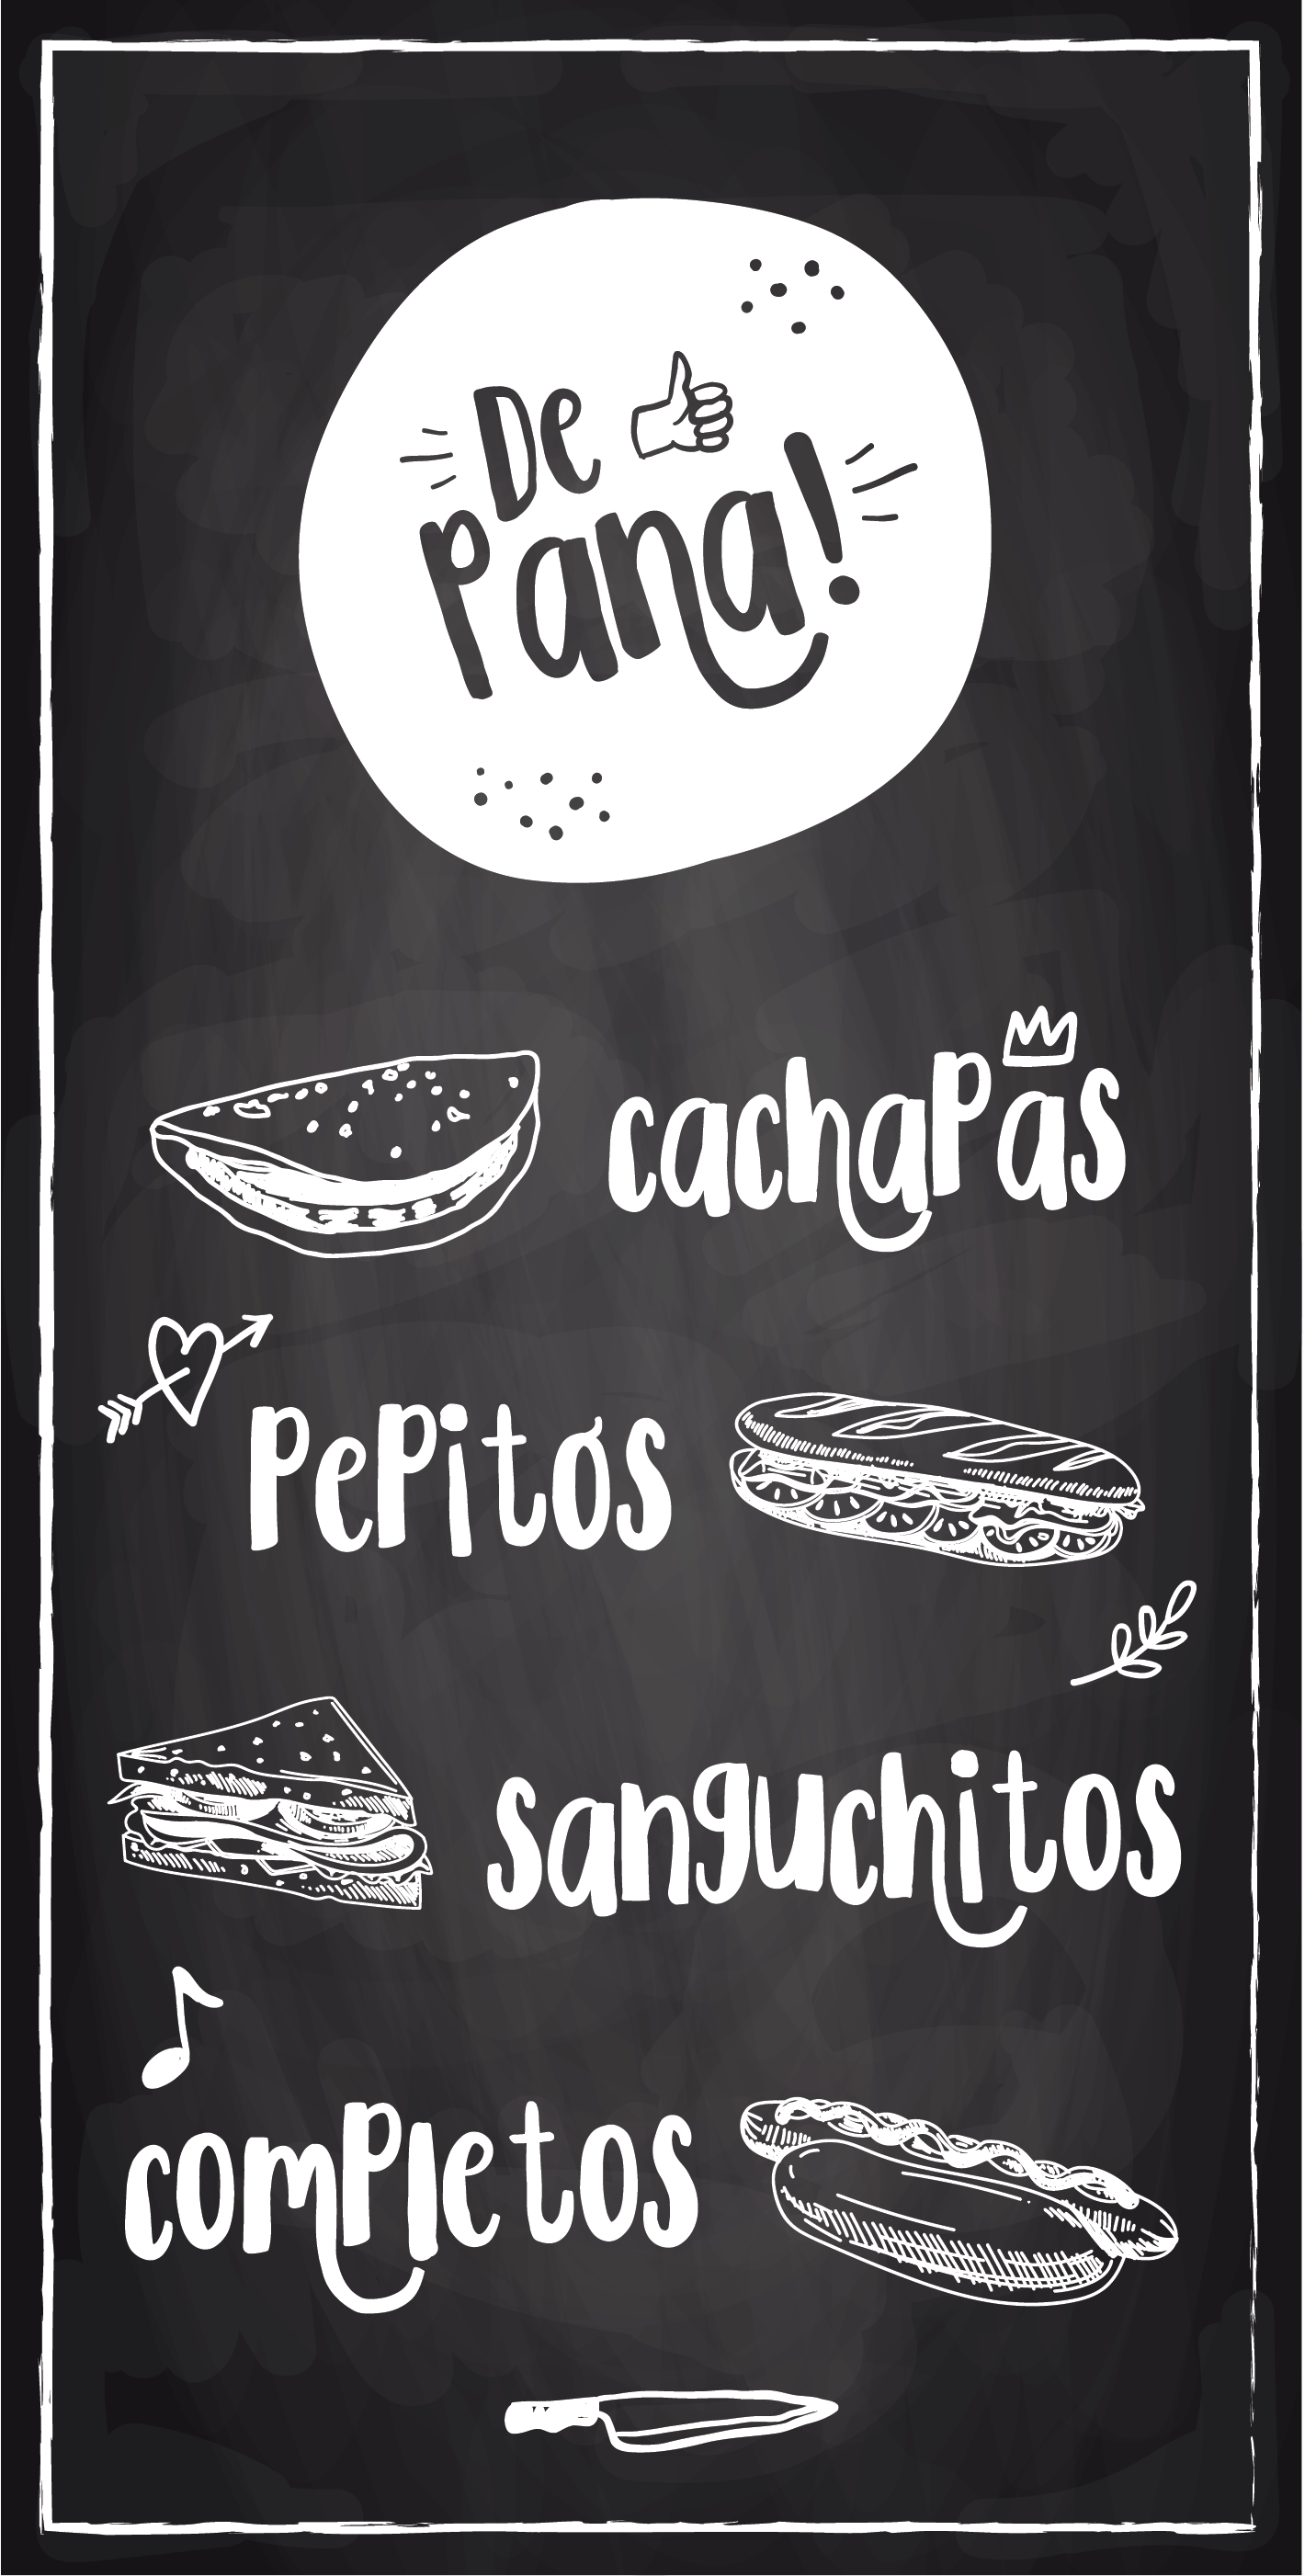 De
Pana!
cachapas
Pepitos
sanguchitos
completos